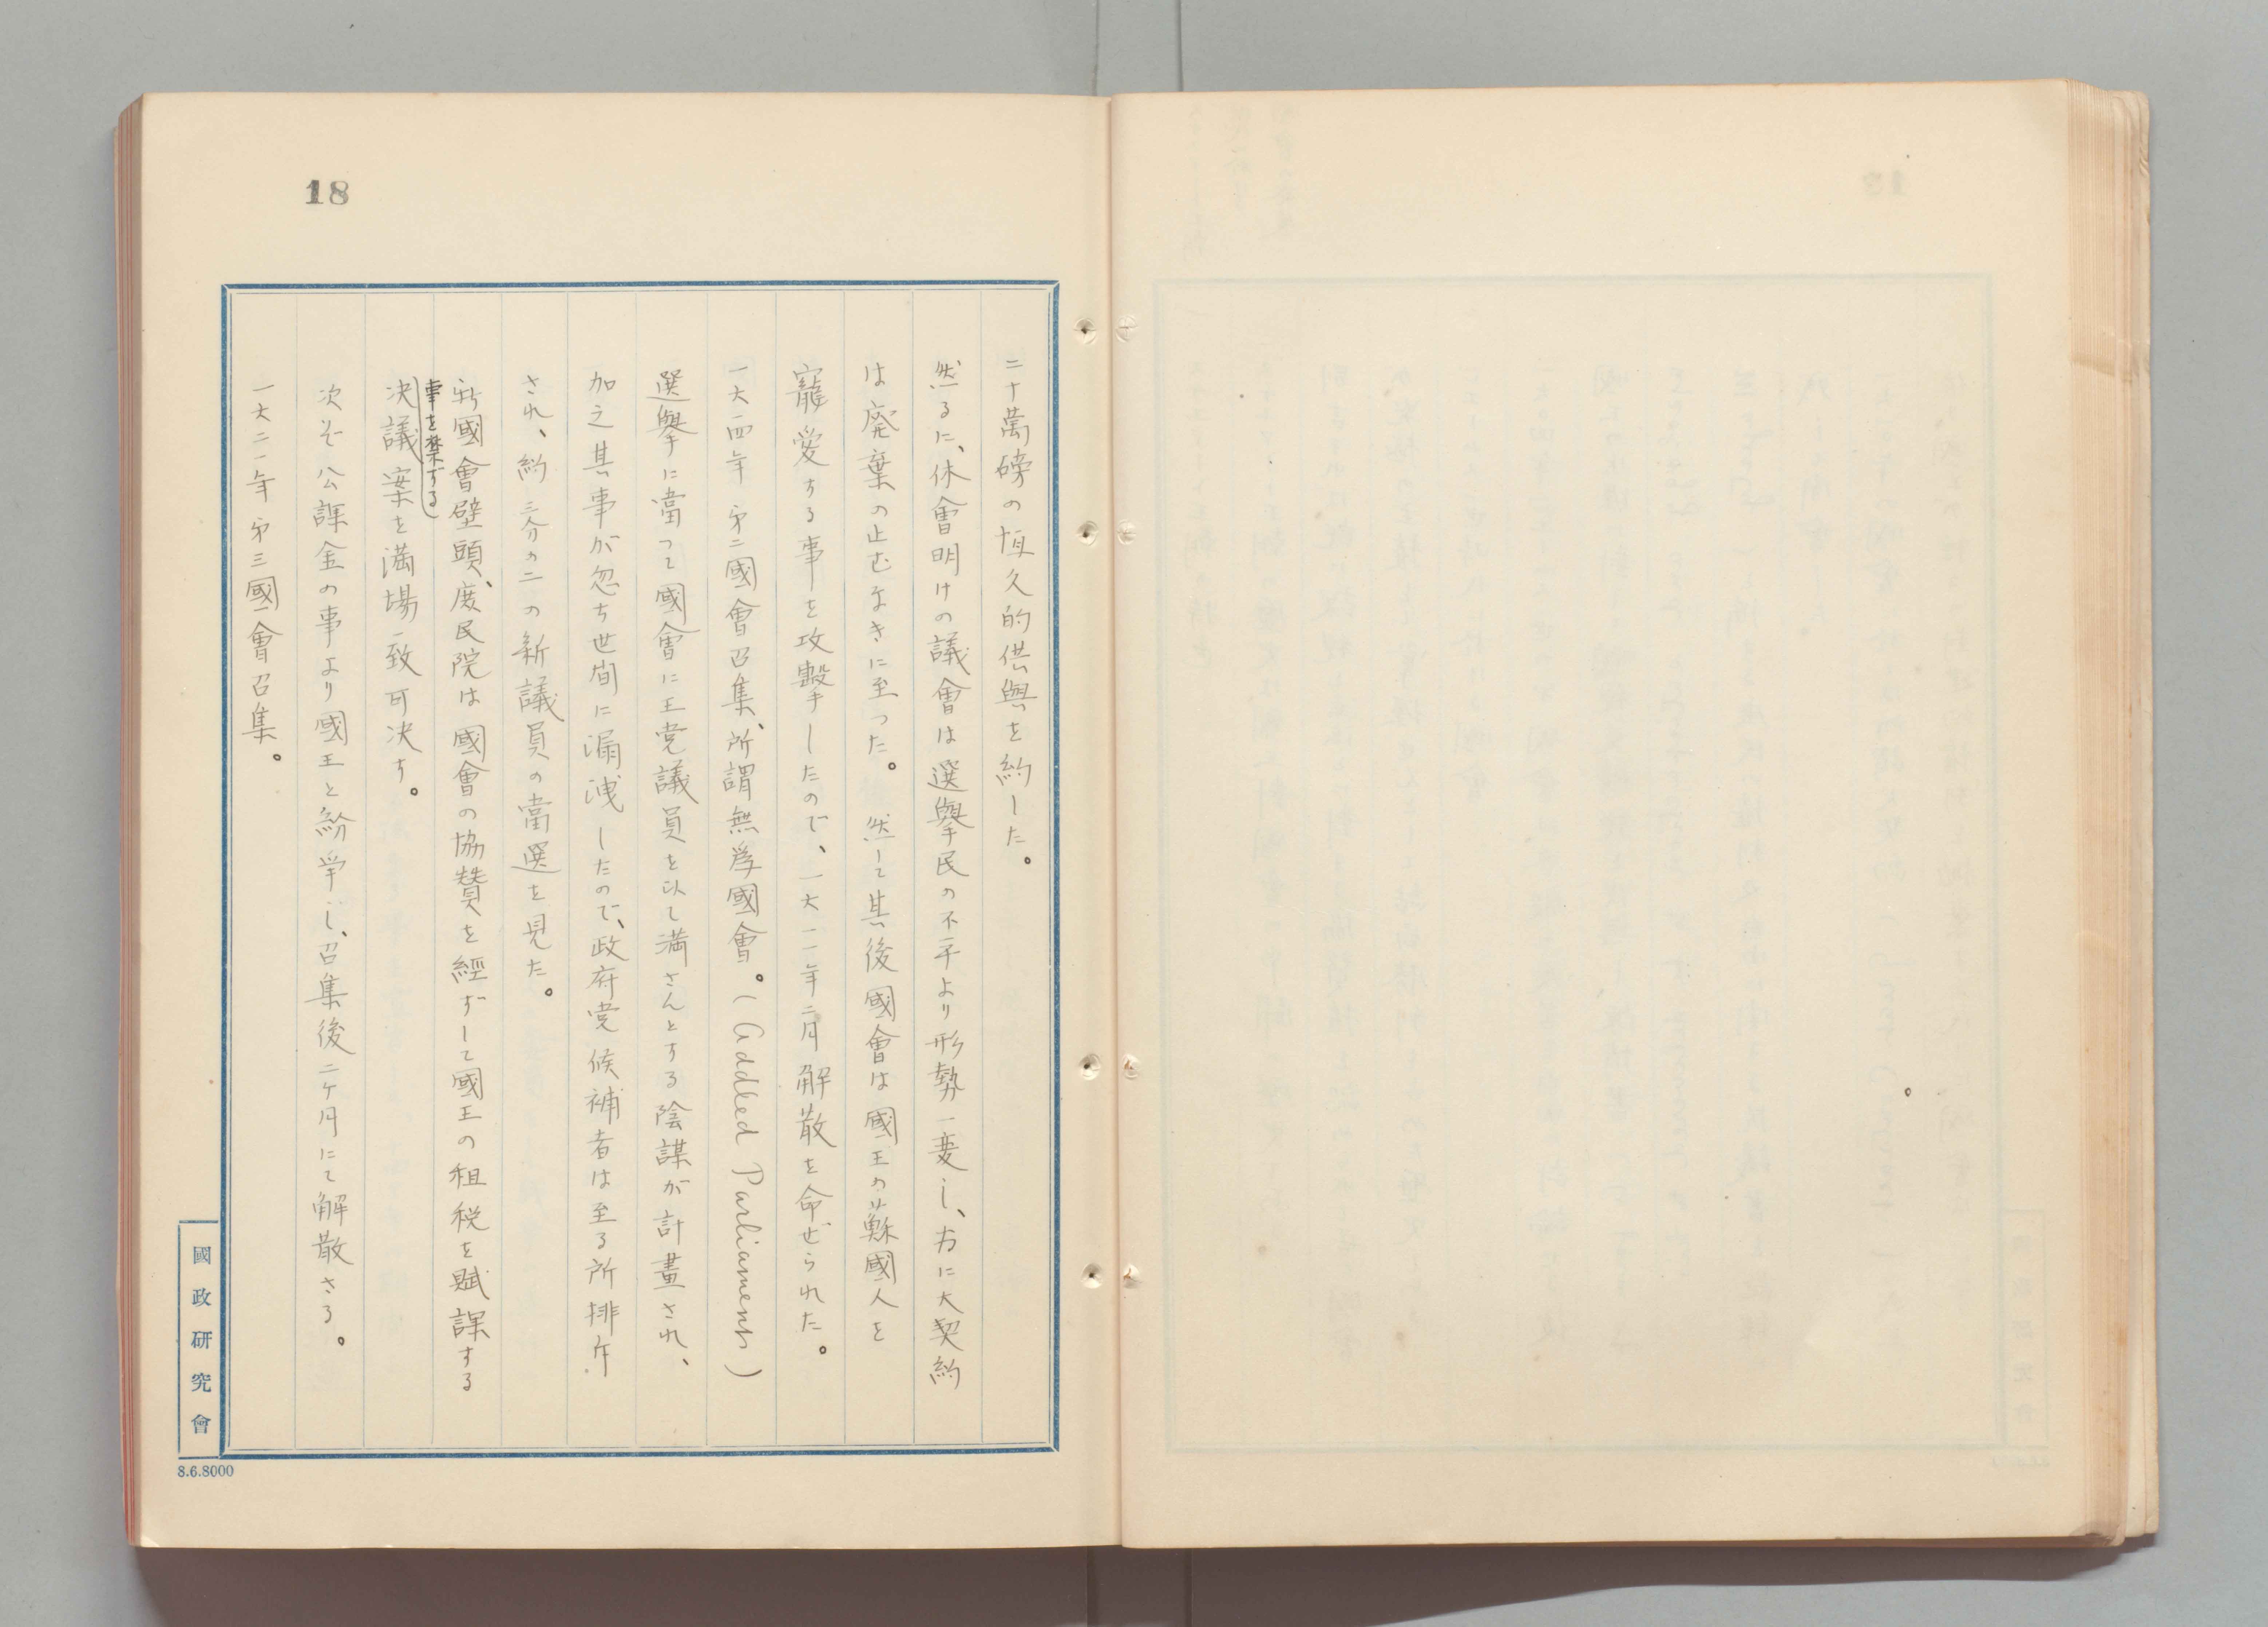 18
二十萬磅の恒久的供與を約した。
然るに、休會明けの議會は選擧民の不平より形勢一変し、為に大契約
は廃棄の止むなきに至った。然して其後國會は國王の蘇國人を
寵愛する事を攻擊したので、一六一一年二月解散を命ぜられた。
一六一四年第二國會召集、所謂無爲國會。(Addled Parliament)
選擧に當って國會に王党議員を以て満さんとする陰謀が計畫され、
加之其事が忽ち世間に漏洩したので、政府党候補者は至る所排斥
され、約三分の二の新議員の當選を見た。
新國會壁頭、庶民院は國會の協賛を經ずして國王の租税を賦課する
事を禁ずる
決議案を満場一致可決す。
次で公課金の事より國王と紛爭し、召集後二ケ月にて解散さる。
一六二一年第三國會召集。
國政研究會
8.6.8000